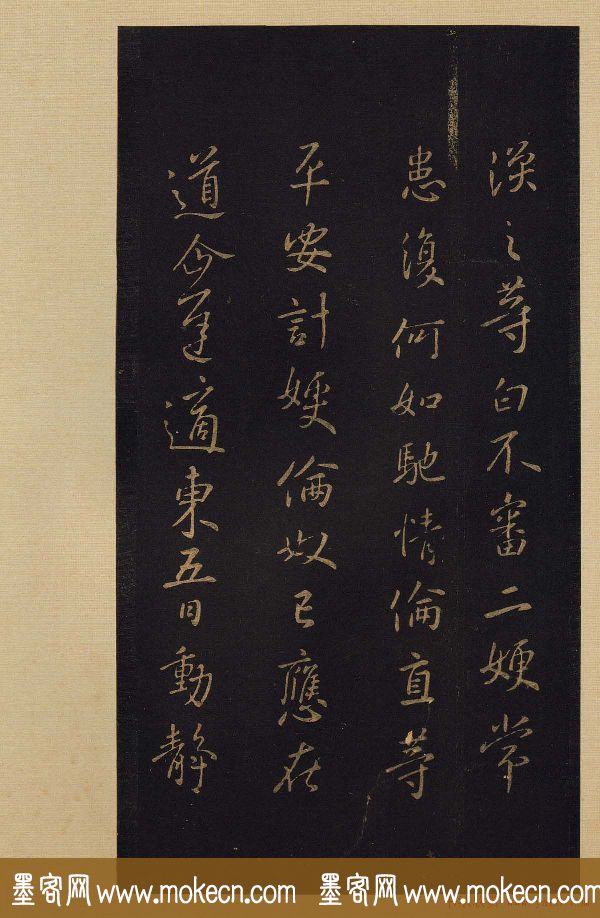 渙之等白不審二嫂常
患復何如馳情倫直等
平安計嫂倫奴已應在
道企遲適東五日動靜
墨客网 www.mokecn.com 墨客网 www.mokecn.com